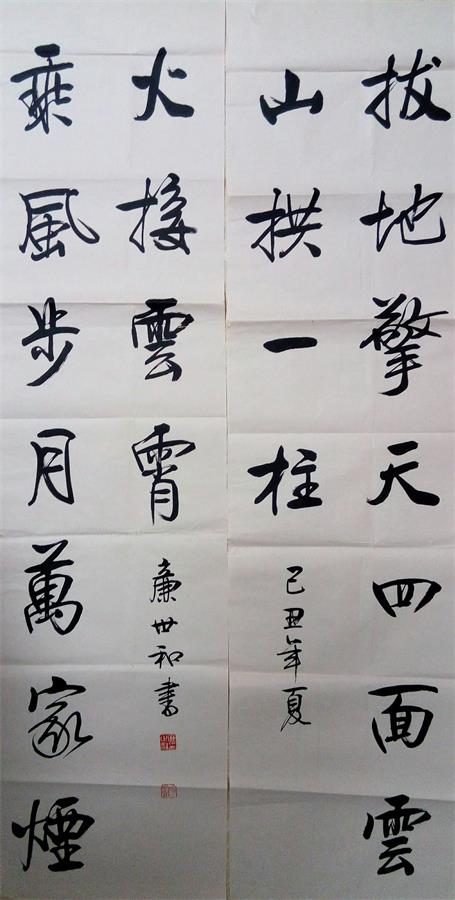 拔地擎天四面雲
山拱一柱
己丑年夏
乘風步月萬家煙
火接雲霄
廉世和書